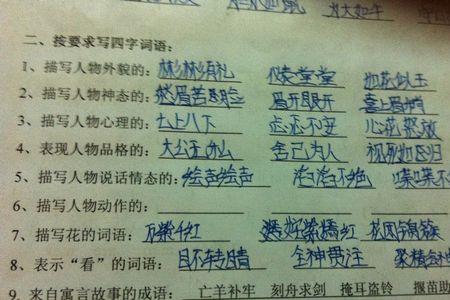 大如牛
二、按要求写四字词语：
1、描写人物外貌的：彬彬有礼 仪表堂堂 如花似玉
2、描写人物神态的：愁眉苦脸 眉开眼开 喜上眉梢
3、描写人物心理的：七上八下 忐忑不安 心花怒放
4、表现人物品格的：大公无私 舍己为人 视死如归
5、描写人物说话情态的：绘声绘声 滔滔不绝 喋喋不
6、描写人物动作的：
7、描写花的词语：万紫千红 紫嫣红 花团锦簇
8、表示“看”的词语：目不转睛 全神贯注 聚精会神
9、来自寓言故事的成语：亡羊补牢 刻舟求剑 掩耳盗铃 揠苗助